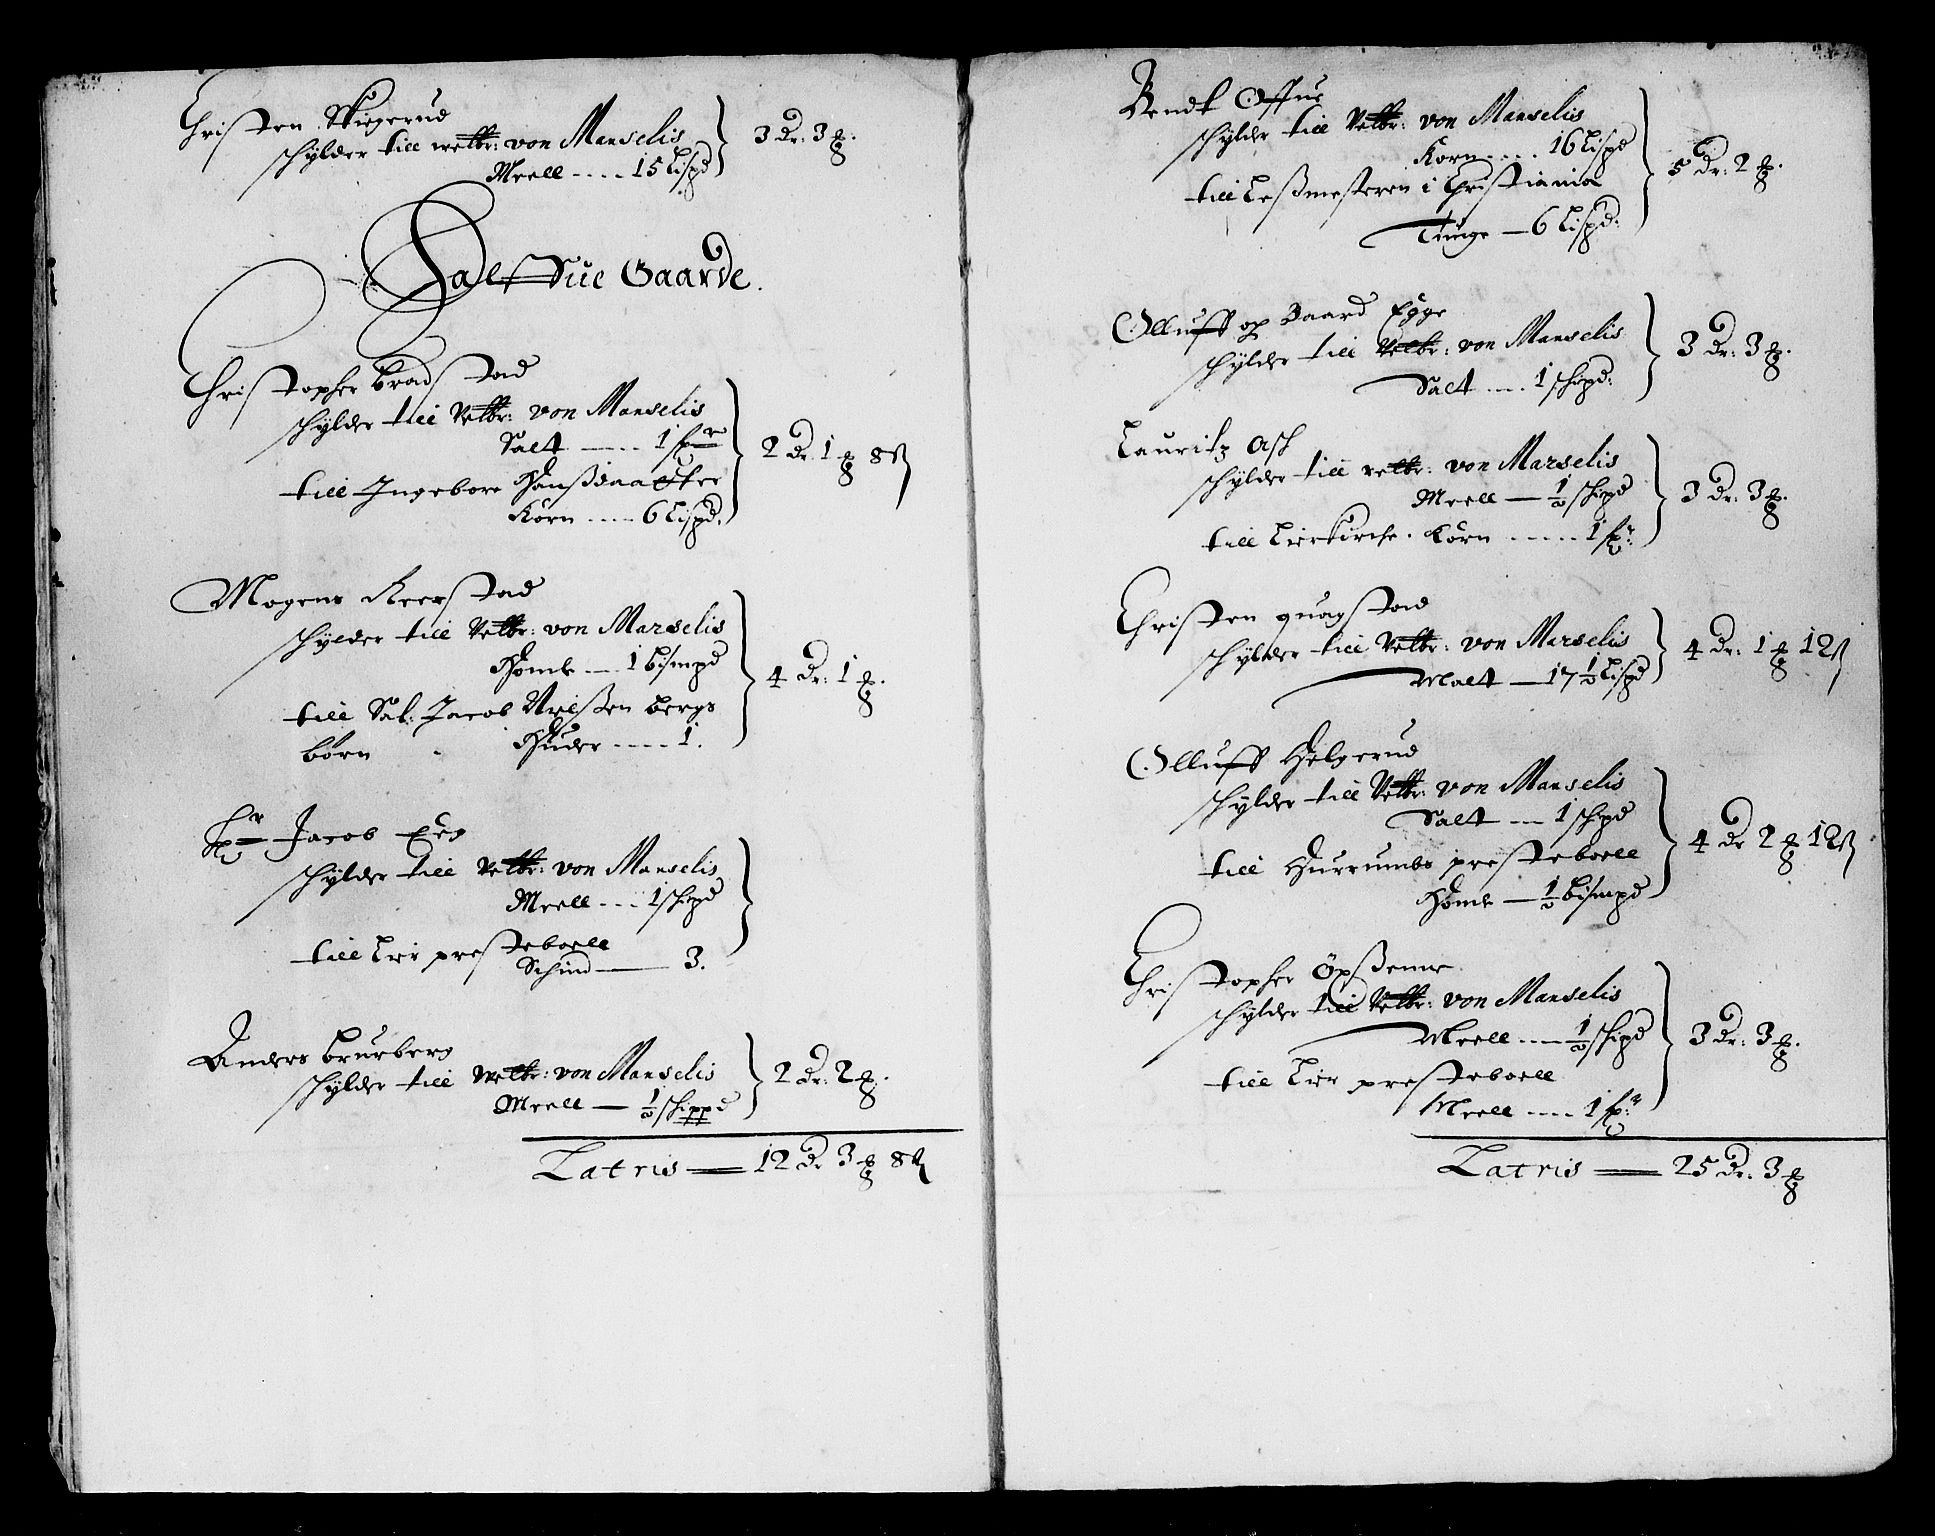 Christen Skiegerud
schÿlder till welbr: von Marselis
Meell .... 15 Lispd
3 Dr: 3 ß.
Halffue Gaarde.
Christopher bradstad
schÿlder till Velbr: von Marselis
Salt .... 1 fr
till Ingebore Hanßdaatter
Korn .... 6 Lispd.
2 Dr 1 ß 8 ß
Mogens Keerstad
schÿlder till Velbr: von Marselis
Homle ... 1 bismpd
till Sal: Jacob bergs
börn Huder .... 1.
4 Dr: 1 ß.
Hr Jacob Eeg
schÿlder till Velbr: von Marselis
Meell ... 1 schipd
till Lier presteboell
Schind — 3.
Anders brurberg
schÿlder till Welbr: von Marselis
Meell — ½ schippd
2 Dr: 2 ß.
Latris — 12 Dr 3 ß 8 ß
Bendt Offue
schÿlder till Velbr: von Marselis
Korn .... 16 Lispd
till Leßmesteren i Christiania
Tunge — 6 Lispd:
5 Dr: 2 ß.
Olluff og Baard Egge
schÿlder till Velbr: von Marselis
Salt .... 1 schipd:
3 Dr: 3 ß.
Lauritz Ask
schÿlder till velbr: von Marselis
Meell — ½ schipd
till Lierkirche. korn ..... 1 fr:
3 Dr: 3 ß.
Christen quagstad
schÿlder till Velbr: von Marselis
Malt — 17½ Lispd
4 Dr: 1 ß 12 ß
Olluff Helgerud
schÿlder till Velbr: von Marselis
Salt ... 1 schipd
till Hurrumbs presteboell
Homle — ½ bismpd
4 Dr 2 ß 12 ß
Christopher Opßenne
schÿlder till Velbr: von Marselis
Meell .... ½ schipd
till Lier presteboell
Meell .... 1 fr:
3 Dr: 3 ß.
Latris — 25 Dr: 3 ß